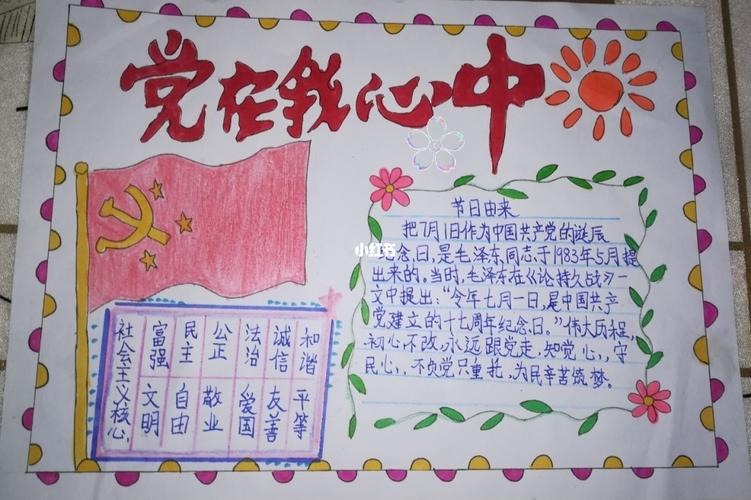 党在我心中
小红书
节日由来
把7月1日作为中国共产党的诞辰
念日,是毛泽东同志于1983年5月提
出来的。当时,毛泽东在《论持久战》一
文中提出:“今年七月一日,是中国共产
党建立的十七周年纪念日。”伟大历程,
初心不改,永远跟党走,知党心,守
民心,不负党只重托,为民辛苦筑梦。
社会主义核心
富强 民主 公正 法治 诚信 和谐
文明 自由 敬业 爱国 友善 平等